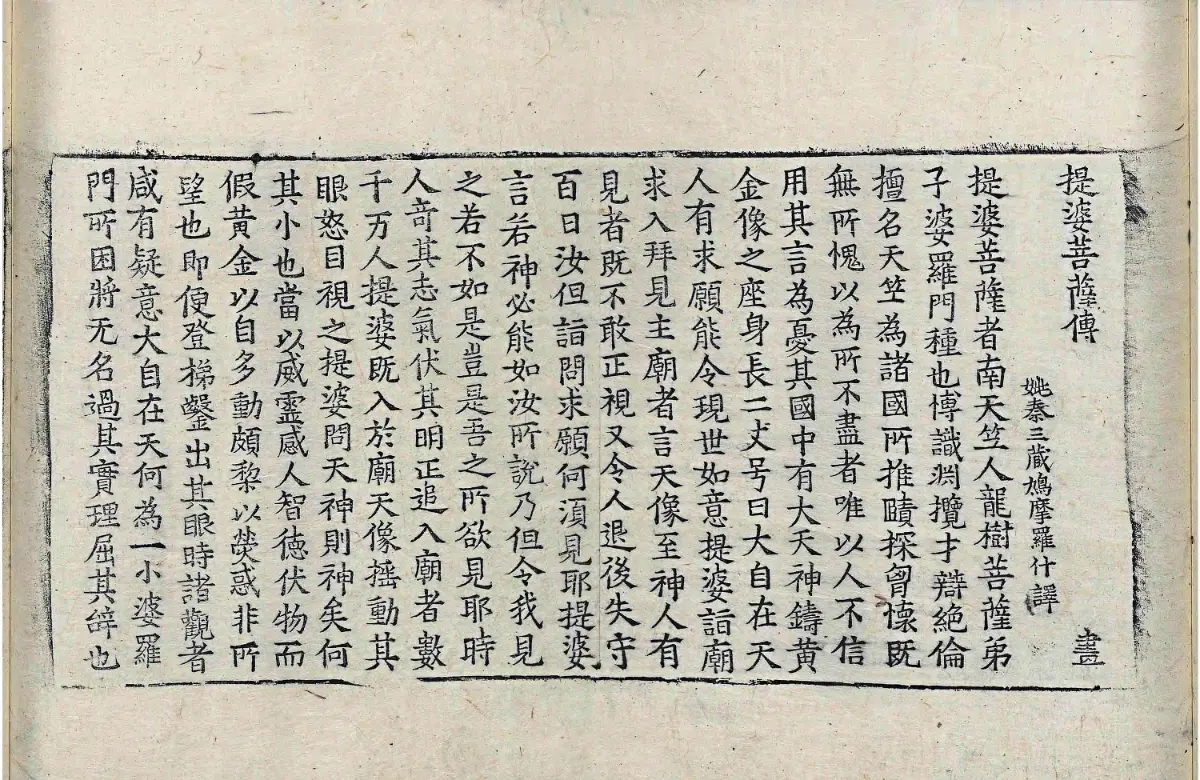 提婆菩薩傳 畫
姚秦三藏鳩摩羅什譯
提婆菩薩者南天竺人龍樹菩薩弟
子婆羅門種也博識淵攬才辯絕倫
擅名天竺為諸國所推賾探胷懷既
無所愧以為所不盡者唯以人不信
用其言為憂其國中有大天神鑄黃
金像之座身長二丈号曰大自在天
人有求願能令現世如意提婆詣廟
求入拜見主廟者言天像至神人有
見者既不敢正視又令人退後失守
百日汝但詣問求願何須見耶提婆
言若神必能如汝所說乃但令我見
之若不如是豈是吾之所欲見耶時
人奇其志氣伏其明正追入廟者數
千万人提婆既入於廟天像搖動其
眼怒目視之提婆問天神則神矣何
其小也當以威靈感人智德伏物而
假黃金以自多動頗梨以熒惑非所
望也即便登梯鑿出其眼時諸觀者
咸有疑意大自在天何為一小婆羅
門所困將无名過其實理屈其辞也